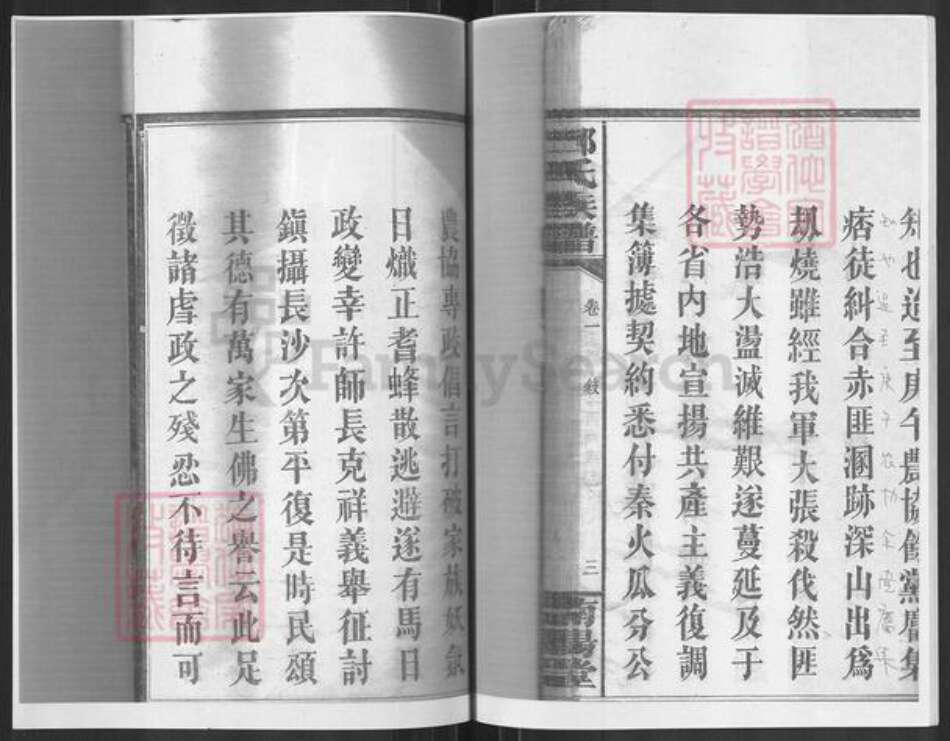 知也迨至庚午農協餘黨麕集
痞徒糾合赤匪溷跡深山出為
刼燒雖經我軍大張殺伐然匪
勢浩大盪滅維艱遂蔓延及于
各省內地宣揚共產主義復調
集簿據契約悉付秦火瓜分公
氏族譜
卷一
敘
三
南陽堂
農協專政倡言打破家族妖氛
日熾正耆蜂散逃避遂有馬日
政變幸許師長克祥義舉征討
鎮攝長沙次第平復是時民頌
其德有萬家生佛之譽云此足
徵諸虐政之殘忍不待言而可
FamilySearch